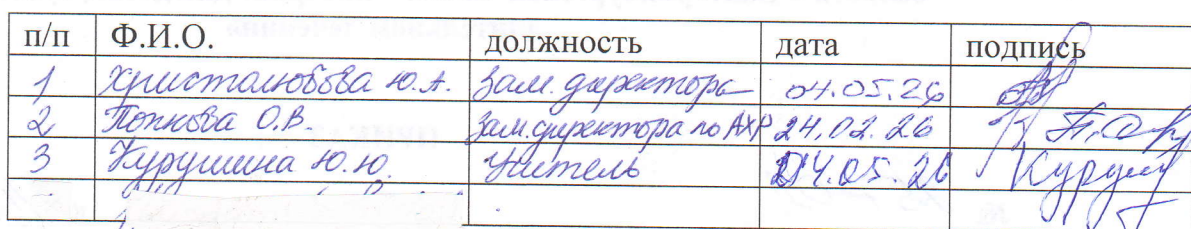 п/п Ф.И.О. должность дата подпись
1 Христолюбова Ю.А. Зам. директора 04.05.26
2 Попкова О.В. Зам. директора по АХР 24.02.26
3 Курушина Ю.Ю. Учитель 04.05.26 Куруш